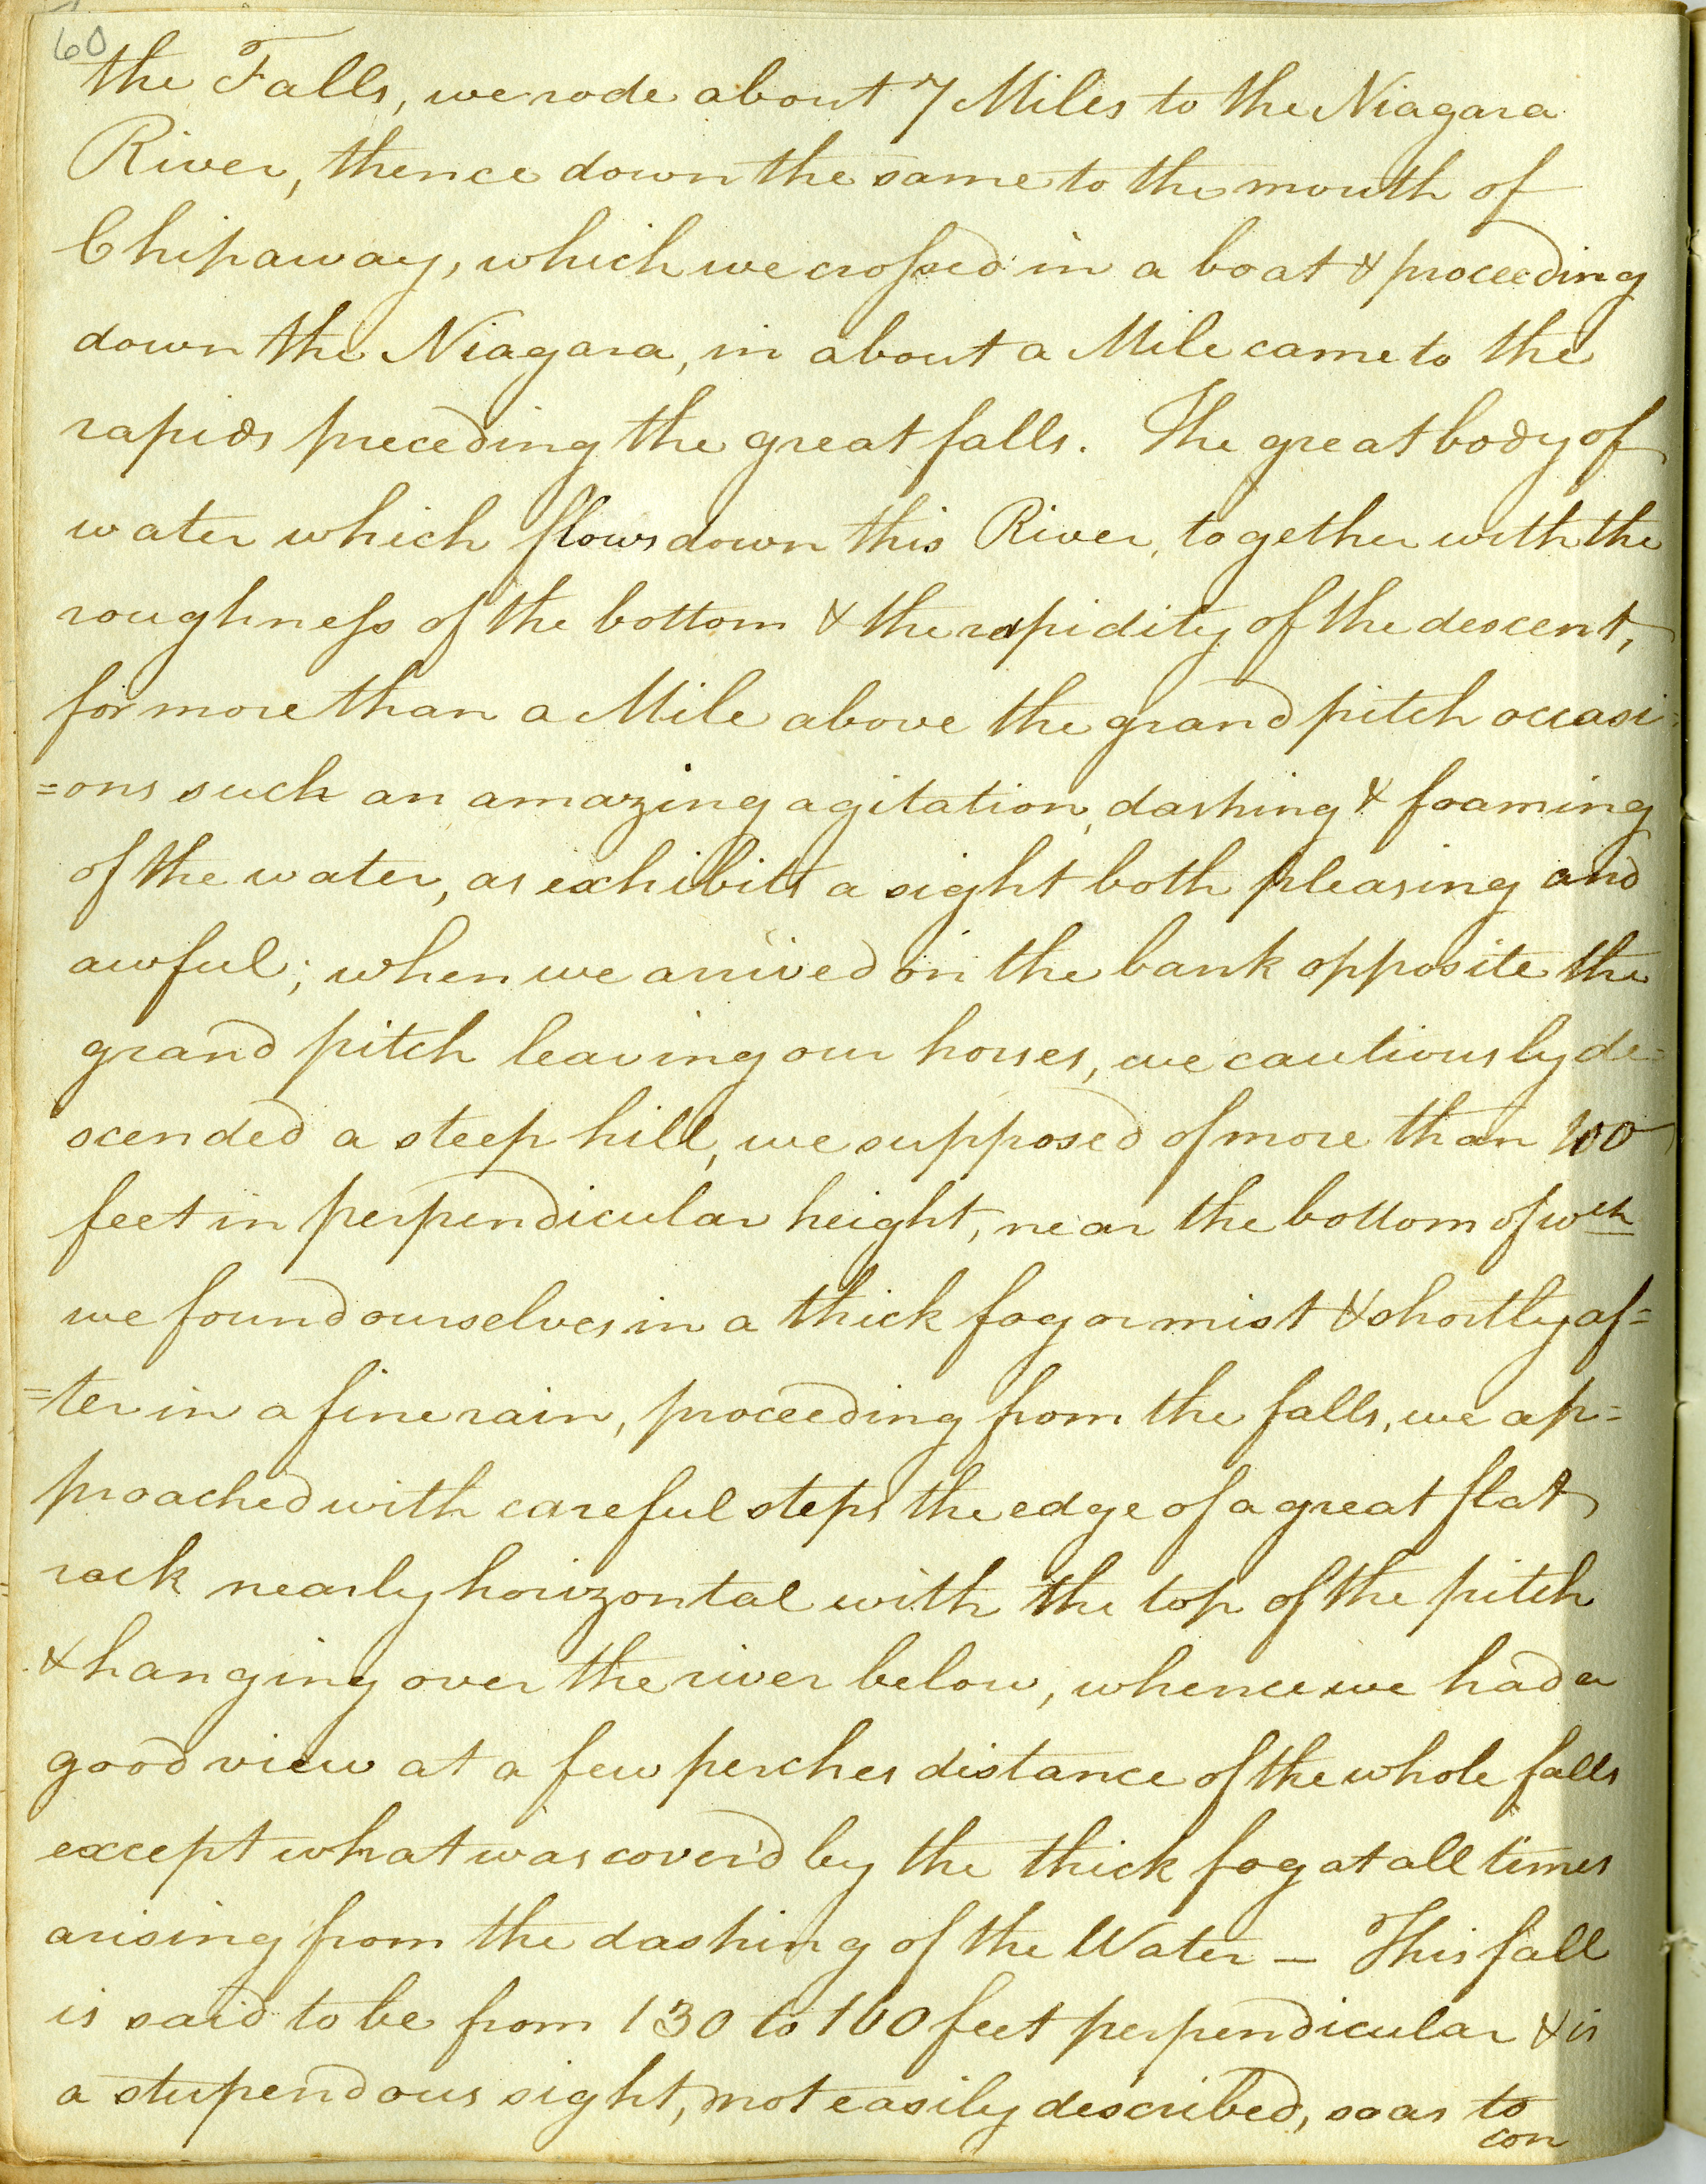 60
the Falls, we rode about 7 Miles to the Niagara
River, thence down the same to the mouth of
Chipaway, which we crossed in a boat & proceeding
down the Niagara, in about a Mile came to the
rapids preceding the great falls. The great body of
water which flows down this River, together with the
roughness of the bottom & the rapidity of the descent,
for more than a Mile above the grand pitch occasi=
=ons such an amazing agitation, dashing & foaming
of the water, as exhibits a sight both pleasing and
awful; when we arrived on the bank opposite the
grand pitch leaving our horses, we cautiously de=
scended a steep hill, we supposed of more than 100
feet in perpendicular height, near the bottom of wch
we found ourselves in a thick fog or mist & shortly af=
=ter in a fine rain, proceeding from the falls, we ap=
proached with careful steps the edge of a great flat
rock nearly horizontal with the top of the pitch
& hanging over the river below, whence we had a
good view at a few perches distance of the whole falls
except what was cover'd by the thick fog at all times
arising from the dashing of the Water — This fall
is said to be from 130 to 160 feet perpendicular & is
a stupendous sight, not easily described, so as to
con